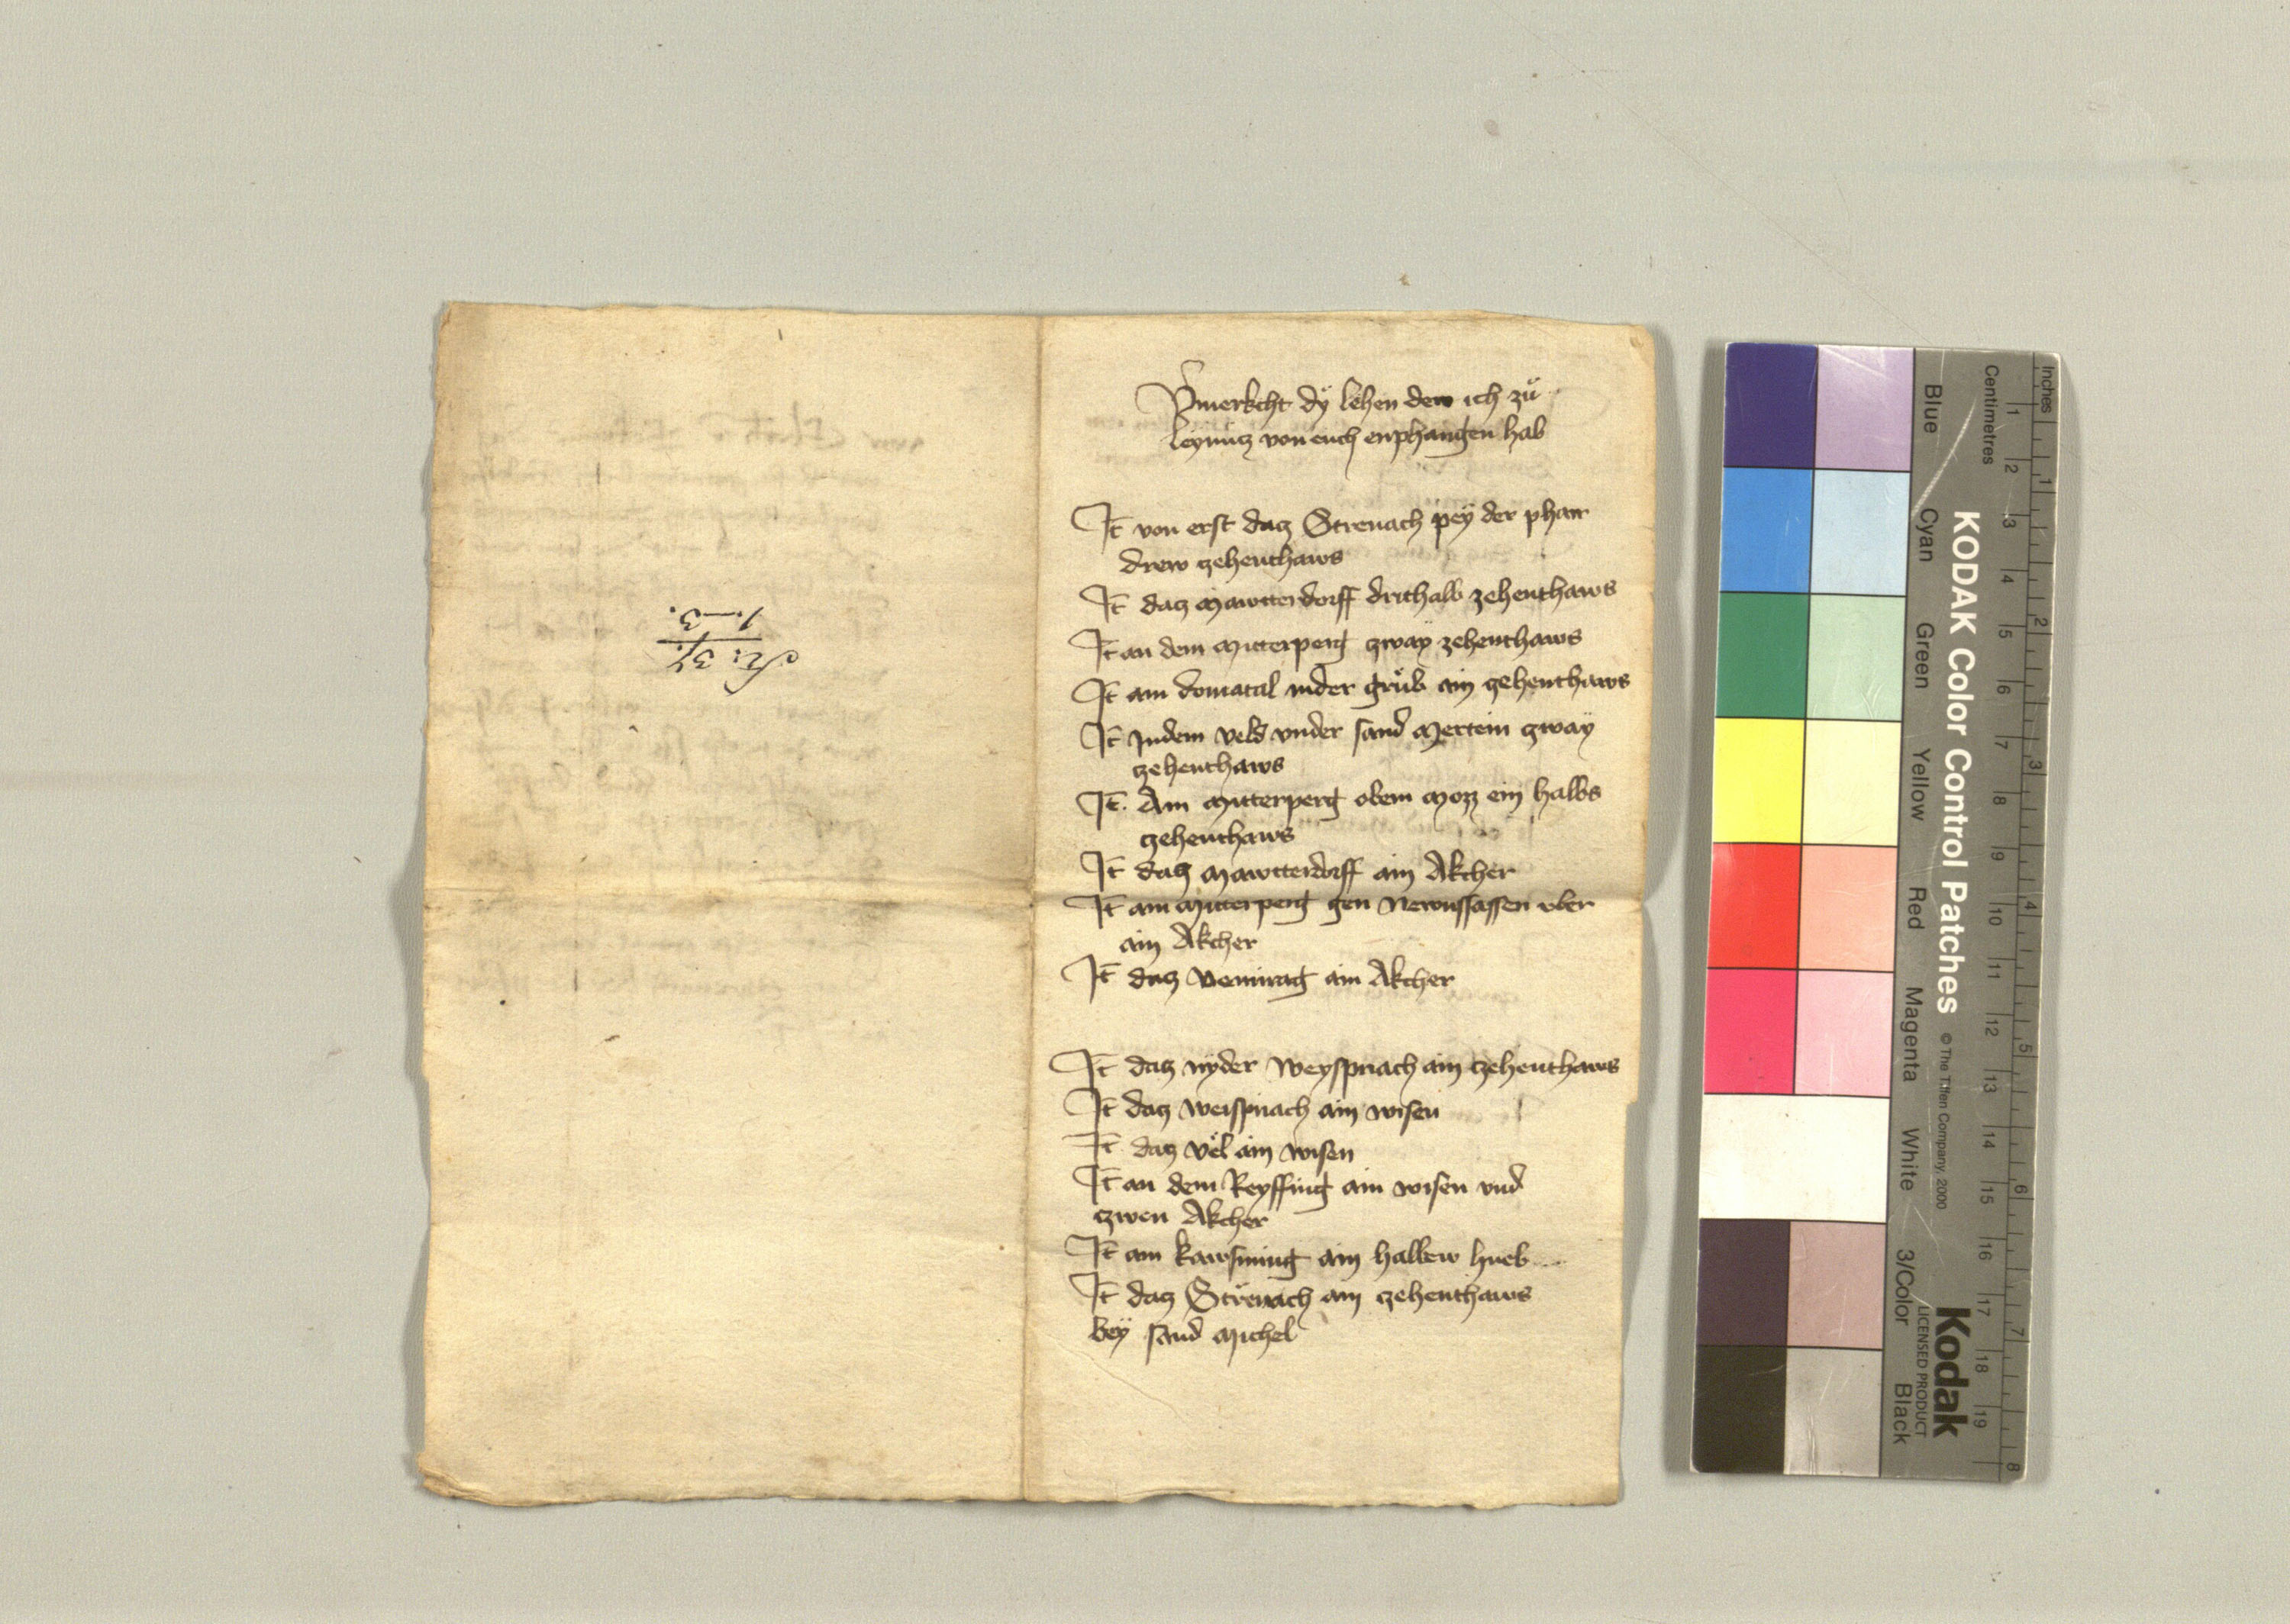 Vmerkcht dÿ lehen dew ich zů
leÿniitz von euch enphangen hab
It von erst datz Strenach peÿ der pharr
drew zehenthaws
It datz Mawtterdorff drithalb zehenthaws
It an dem Mitterperg zwaÿ zehenthaws
It am domatal inder grůb ain zehenthaws
It Indem veld vnder sand Mertein zwaÿ
zehenthaws
It. Am Mitterperg obem Mozz ein halbs
zehenthaws
It datz Mawtterdorff ain Akcher
It am Mitterperg gen Newnsassen vber
ain Akcher
It datz Vemirag ain Akcher
It datz nÿder Weÿspriach ain zehenthaws
It datz Weispriach ain wisen
It datz Vël ain wisen
It an dem Reÿffing ain wisen vnd
zwen Akcher
It am kawsning ain halbew hueb
It datz Strenach ain zehenthaws
beÿ sand Michel
N: 34
1.–3.
KODAK Color Control Patches
© The Tiffen Company, 2000
Kodak
LICENSED PRODUCT
Blue Cyan Green Yellow Red Magenta White 3/Color Black
Inches 1 2 3 4 5 6 7 8
Centimetres 1 2 3 4 5 6 7 8 9 10 11 12 13 14 15 16 17 18 19